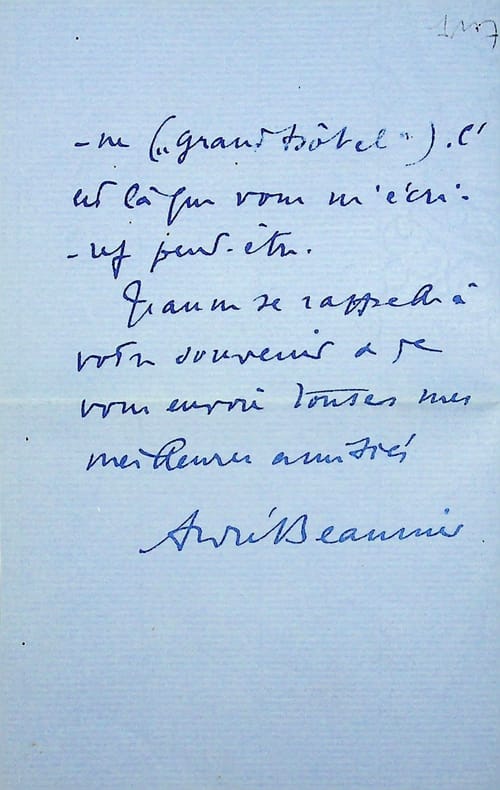 -ne („Grand Hôtel"). C'
est là que vous m'écri-
-rez peut-être.
Jeanne se rappelle à
votre souvenir & je
vous envoie toutes mes
meilleures amitiés
André Beaunier